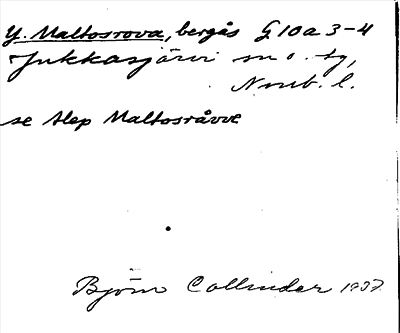 Y. Maltosrova, bergås G 10a 3-4
Jukkasjärvi sn o. tg,
Norrb. l.
se Alep Maltosråvve
Björn Collinder 1937